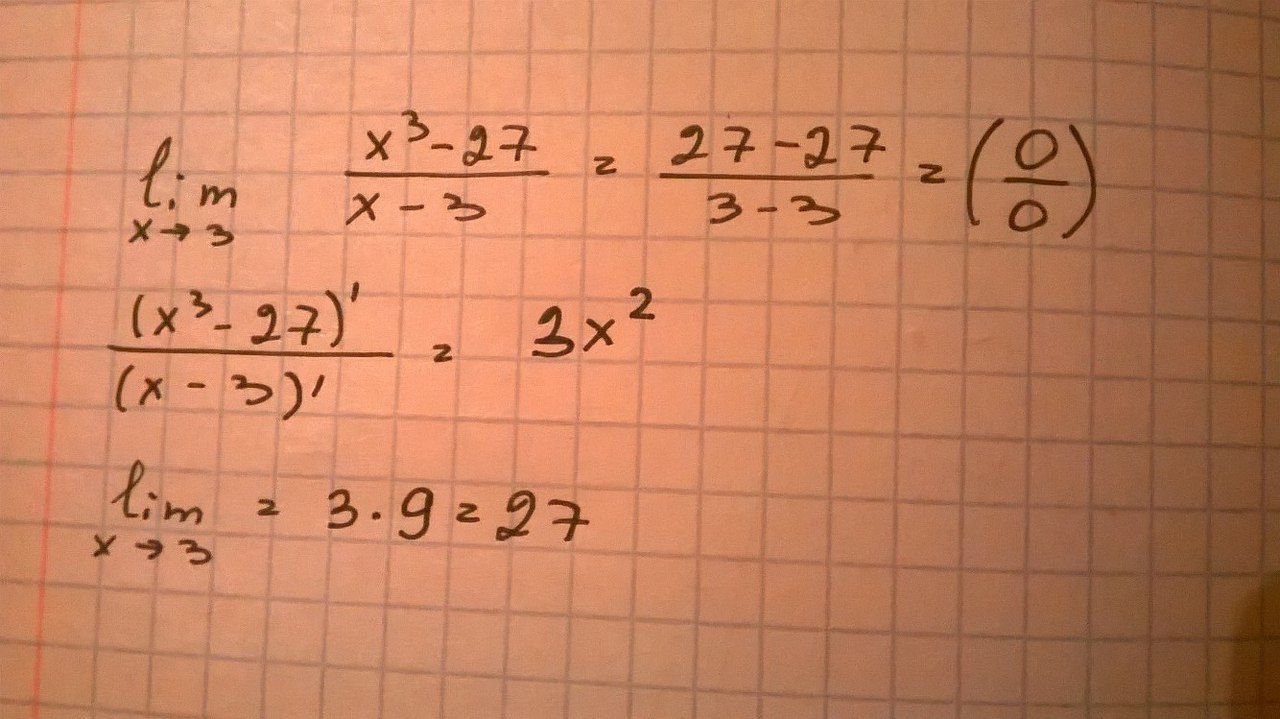 lim x→3 (x³-27)/(x-3) = (27-27)/(3-3) = (0/0)
(x³-27)'/(x-3)' = 3x²
lim x→3 = 3·9=27